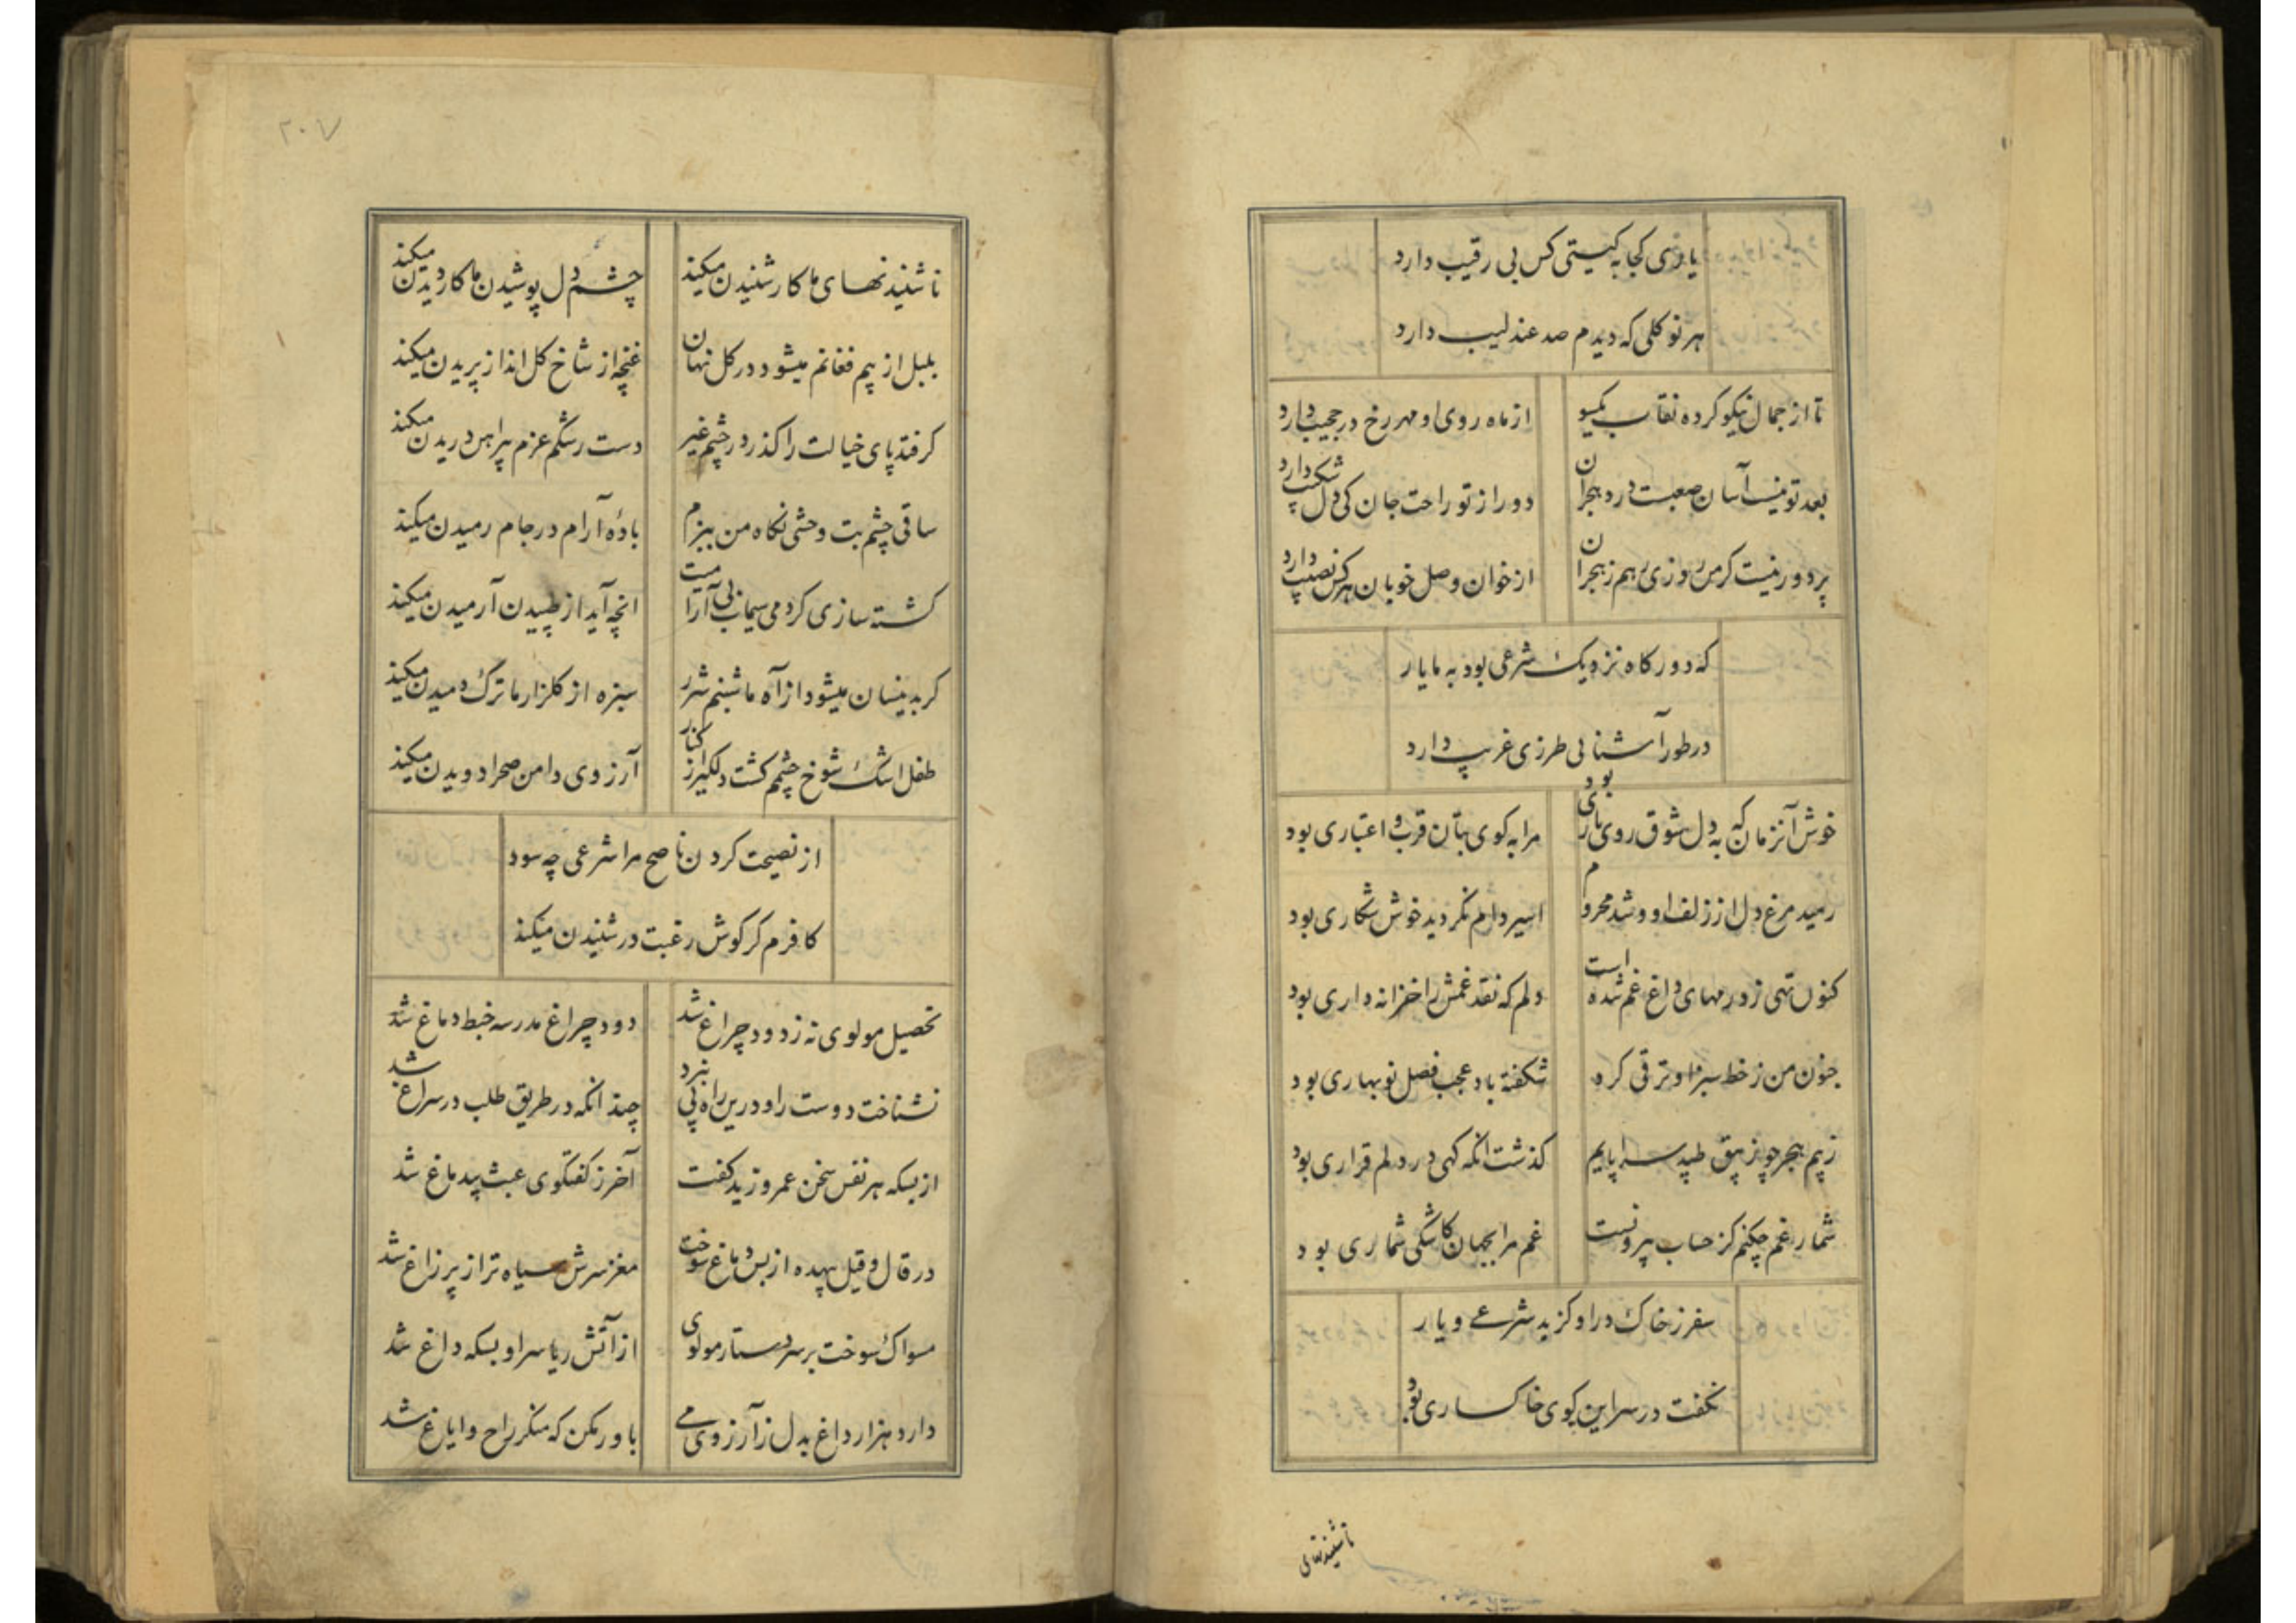 یاری کجا به گیتی کس بی رقیب دارد
هر نوکلی که دیدم صد عندلیب دارد
تا از جمال نیکو کرده نقاب یکسو از ماه روی او مهر رخ در حجیب دارد
بعد تو نیست آسان صعبست درد هجران دور از تو راحت جان کی دل شکیب دارد
پر دور نیست کر من روزی برم ز هجران از خوان وصل خوبان هر کس نصیب دارد
که دور کاه نزدیک شرعی بود به ما یار
در طور آشنائی طرزی غریب دارد
خوش آنزمان که به دل شوق روی یاری بود مرا به کوی بتان قرب و اعتباری بود
رمید مرغ دل از زلف او و شد محروم اسیر دام نکردید خوش شکاری بود
کنون تهی ز درمهای داغ غم شده است دلم که نقد غمش را خزانه داری بود
جنون من ز خط سبز او ترقی کرد شکفته باد عجب فصل نوبهاری بود
ز بیم هجر چو زیبق طپد سراپایم کذشت انکه کهی در دلم قراری بود
شمار غم چکنم کز حساب بیرونست غم مرا بجهان کاشکی شماری بود
سفر ز خاک در او کزید شرعی و یار
نکفت در سر این کوی خاکساری بود
ناشنیدنهای
۲۰۷
ناشنیدنهای ما کار شنیدن میکند چشم دل پوشیدن ما کار دیدن میکند
بلبل از بیم فغانم میشود در کل نهان غنچه از شاخ کل انداز پریدن میکند
کرفتد پای خیالت را کذر در چشم غیر دست رشکم عزم پیراهن دریدن میکند
ساقی چشم بت وحشی نکاه من ببزم بادهٔ آرام در جام رمیدن میکند
کشته سازی کردمی سیماب بی آرامیت انچه آید از طپیدن آرمیدن میکند
کر بدینسان میشود از آه ما شبنم شرر سبزه از کلزار ما ترک دمیدن میکند
طفل اشک شوخ چشم کشت دلکیر از کنار آرزوی دامن صحرا دویدن میکند
از نصیحت کردن ناصح مرا شرعی چه سود
کافرم کر کوش رغبت در شنیدن میکند
تحصیل مولوی نه ز دود چراغ شد دود چراغ مدرسه خبط دماغ شد
نشناخت دوست را و درین راه پی نبرد چندانکه در طریق طلب در سراغ شد
از بسکه هر نفس سخن عمرو زید کفت آخر ز کفتکوی عبث بیدماغ شد
در قال و قیل بیهده از بس دماغ سوخت مغز سرش سیاه تر از پر زاغ شد
مسواک سوخت بر سر دستار مولوی از آتش ریا سر او بسکه داغ شد
دارد هزار داغ بدل ز آرزوی می باور مکن که منکر راح و ایاغ شد